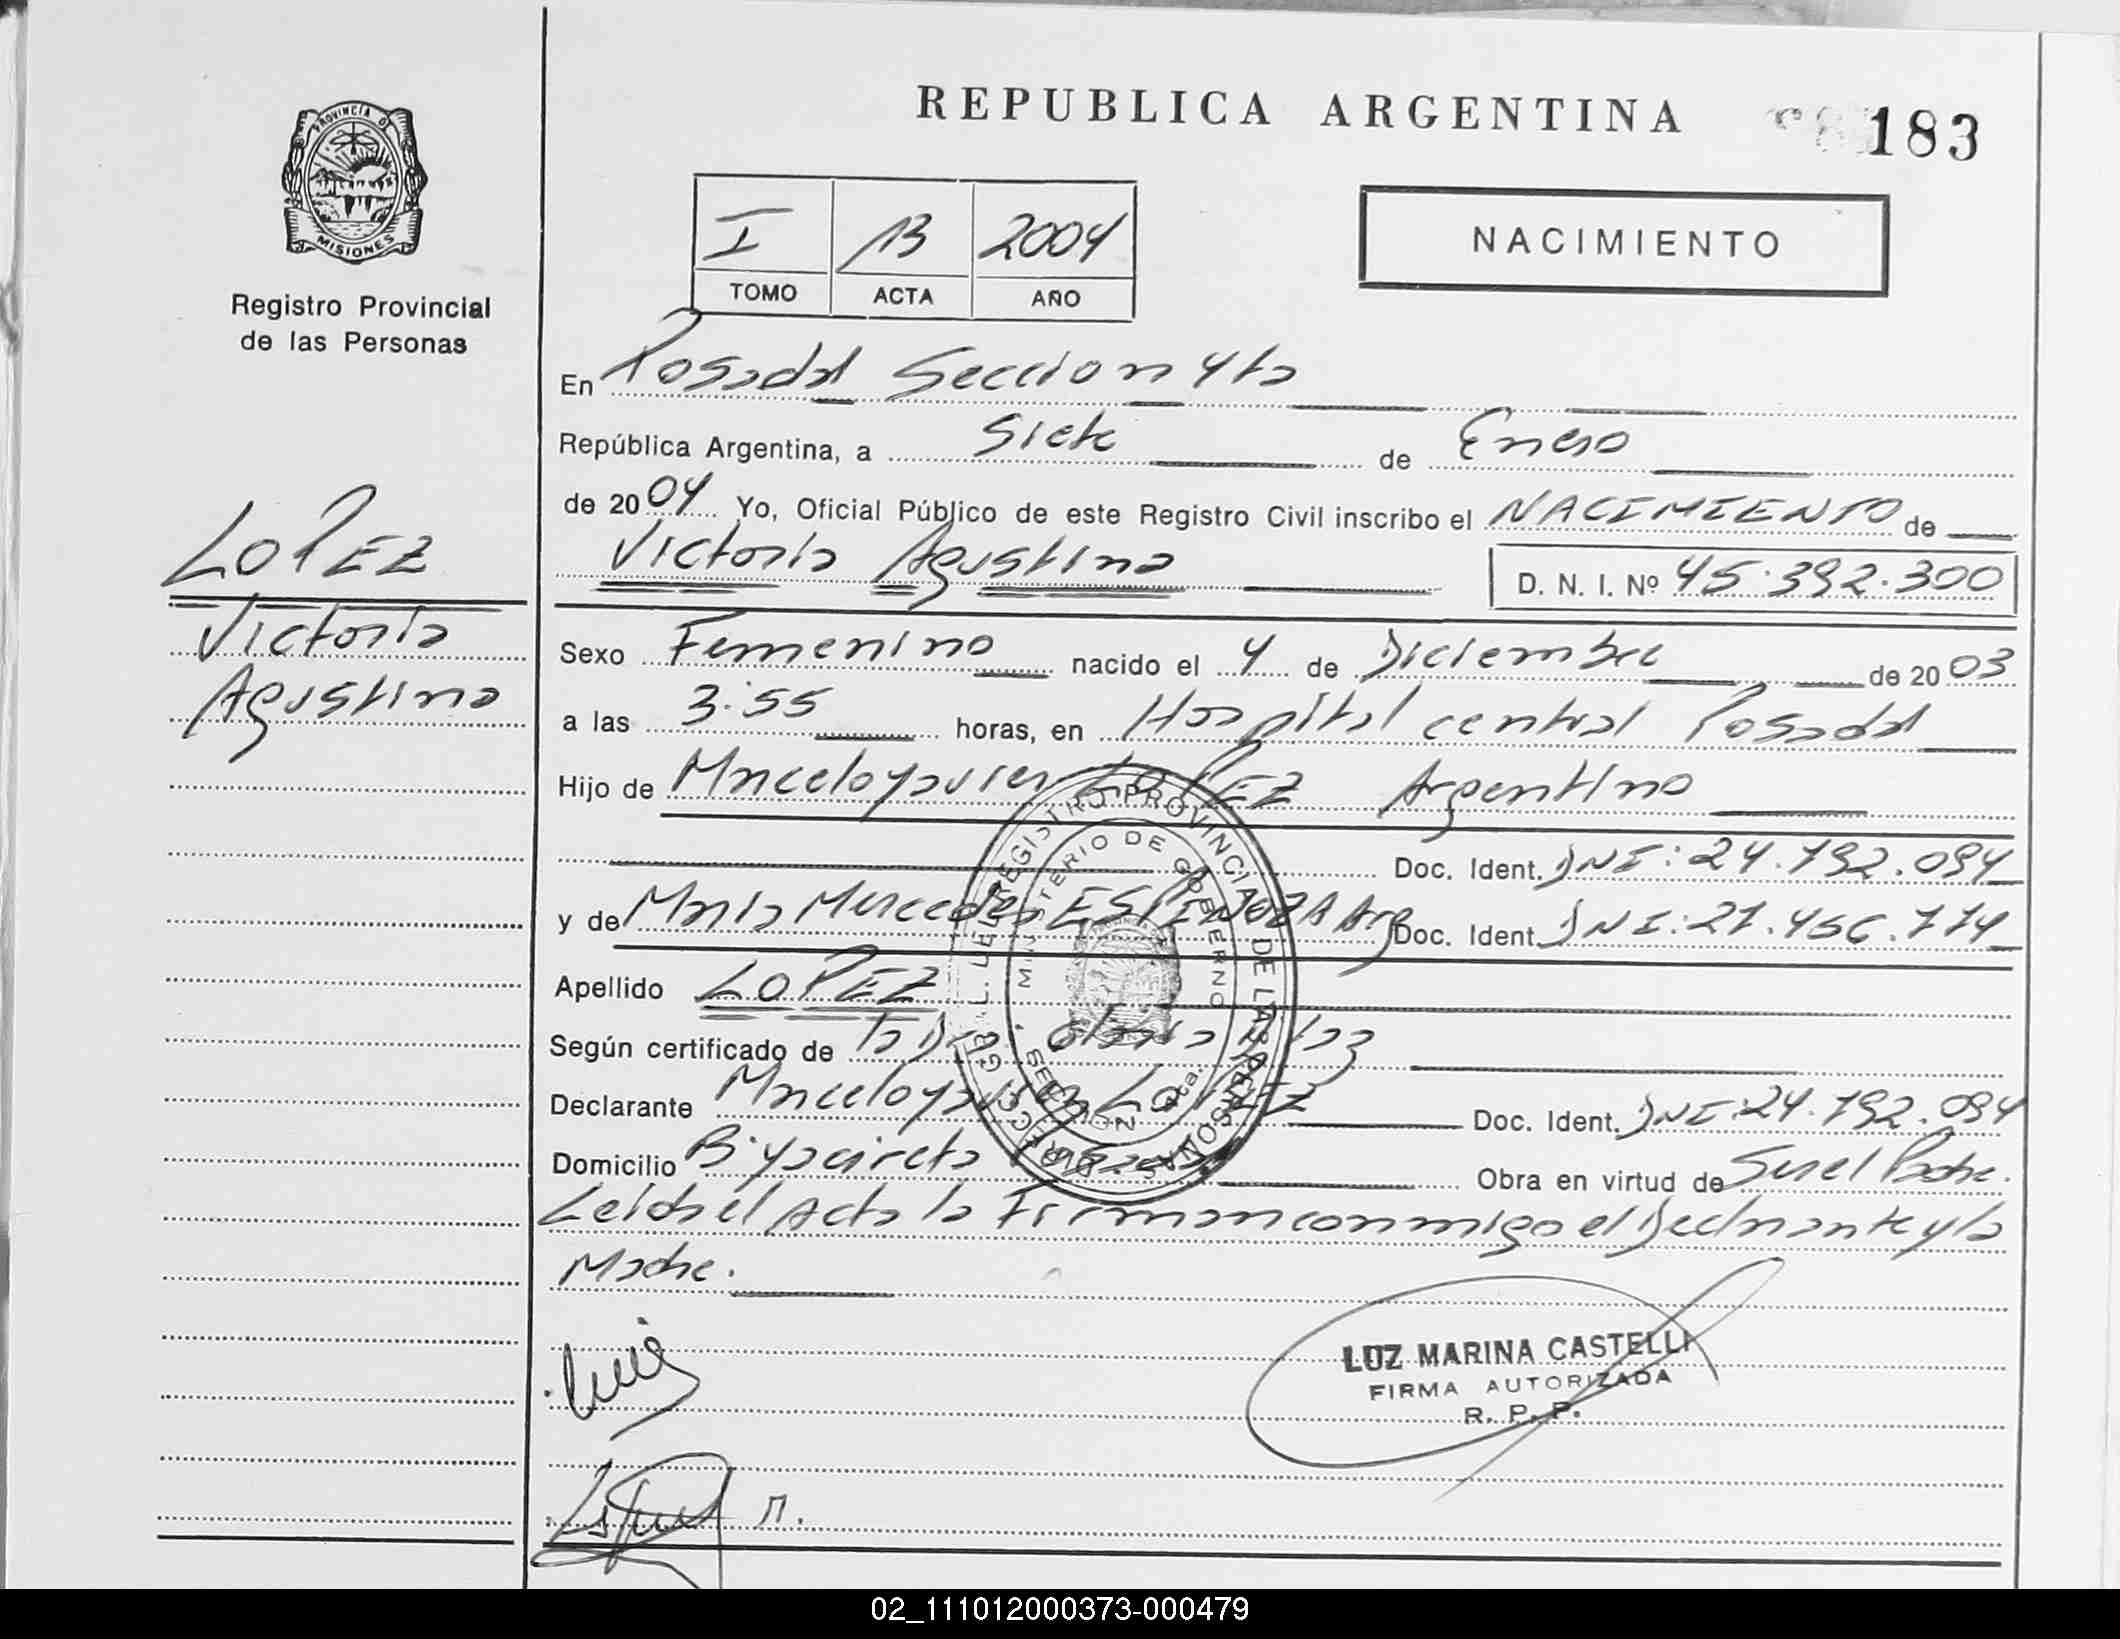 REPUBLICA ARGENTINA
183
PROVINCIA DE
MISIONES
Registro Provincial
de las Personas
I 13 2004
TOMO ACTA AÑO
NACIMIENTO
En Posadas Seccion 4ta
República Argentina, a Siete de Enero
de 2004 Yo, Oficial Público de este Registro Civil inscribo el NACIMIENTO de
Victoria Agustina D. N. I. Nº 45.392.300
LOPEZ
Victoria
Agustina
Sexo Femenino nacido el 4 de Diciembre de 2003
a las 3:55 horas, en Hospital central Posadas
Hijo de Marcelo Javier LOPEZ Argentino
Doc. Ident. DNI: 24.792.094
y de Maria Mercedes ESPINOZA Arg Doc. Ident. DNI: 27.456.774
Apellido LOPEZ
Según certificado de la Dra.
Declarante Marcelo Javier LOPEZ Doc. Ident. DNI: 24.792.094
Domicilio Bº Yacireta Posadas Obra en virtud de Ser el Padre.
Leida el Acta la Firman conmigo el Declarante y la
Madre.
REGISTRO PROVINCIAL DE LAS PERSONAS
MINISTERIO DE GOBIERNO
SECCION 4ta.
LUZ MARINA CASTELLI
FIRMA AUTORIZADA
R. P. P.
02_111012000373-000479